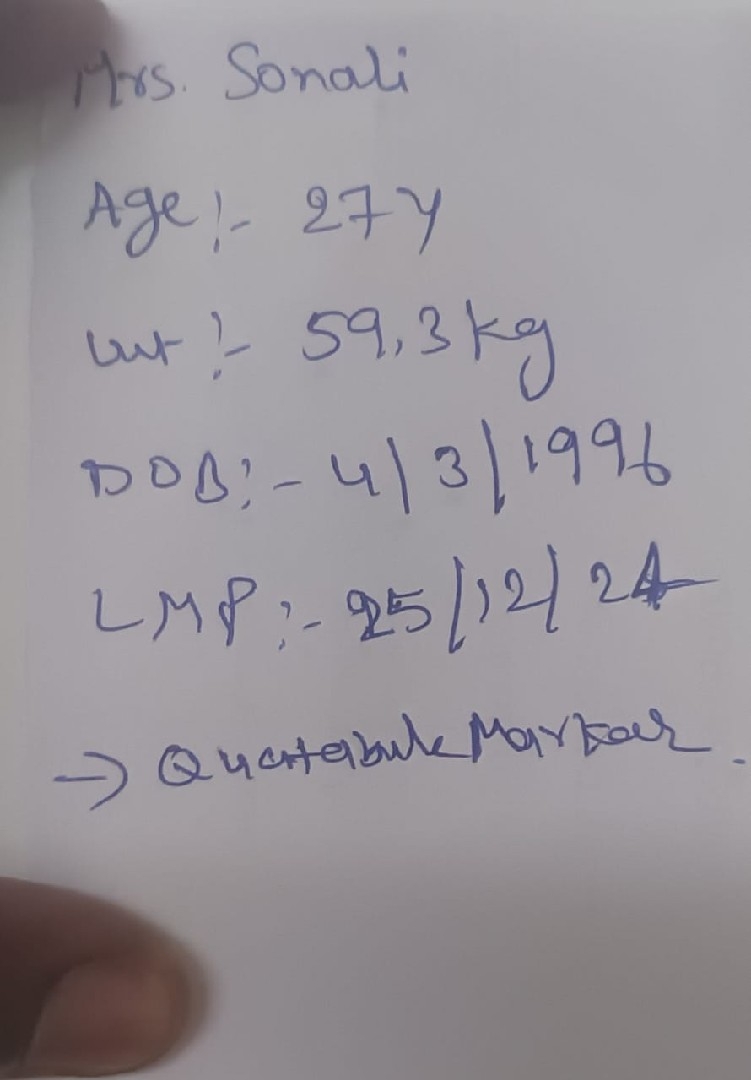 Mrs. Sonali
Age :- 27 Y
wt :- 59.3 kg
DOB :- 4/3/1996
LMP :- 25/12/24
→ Quatabule Markar.